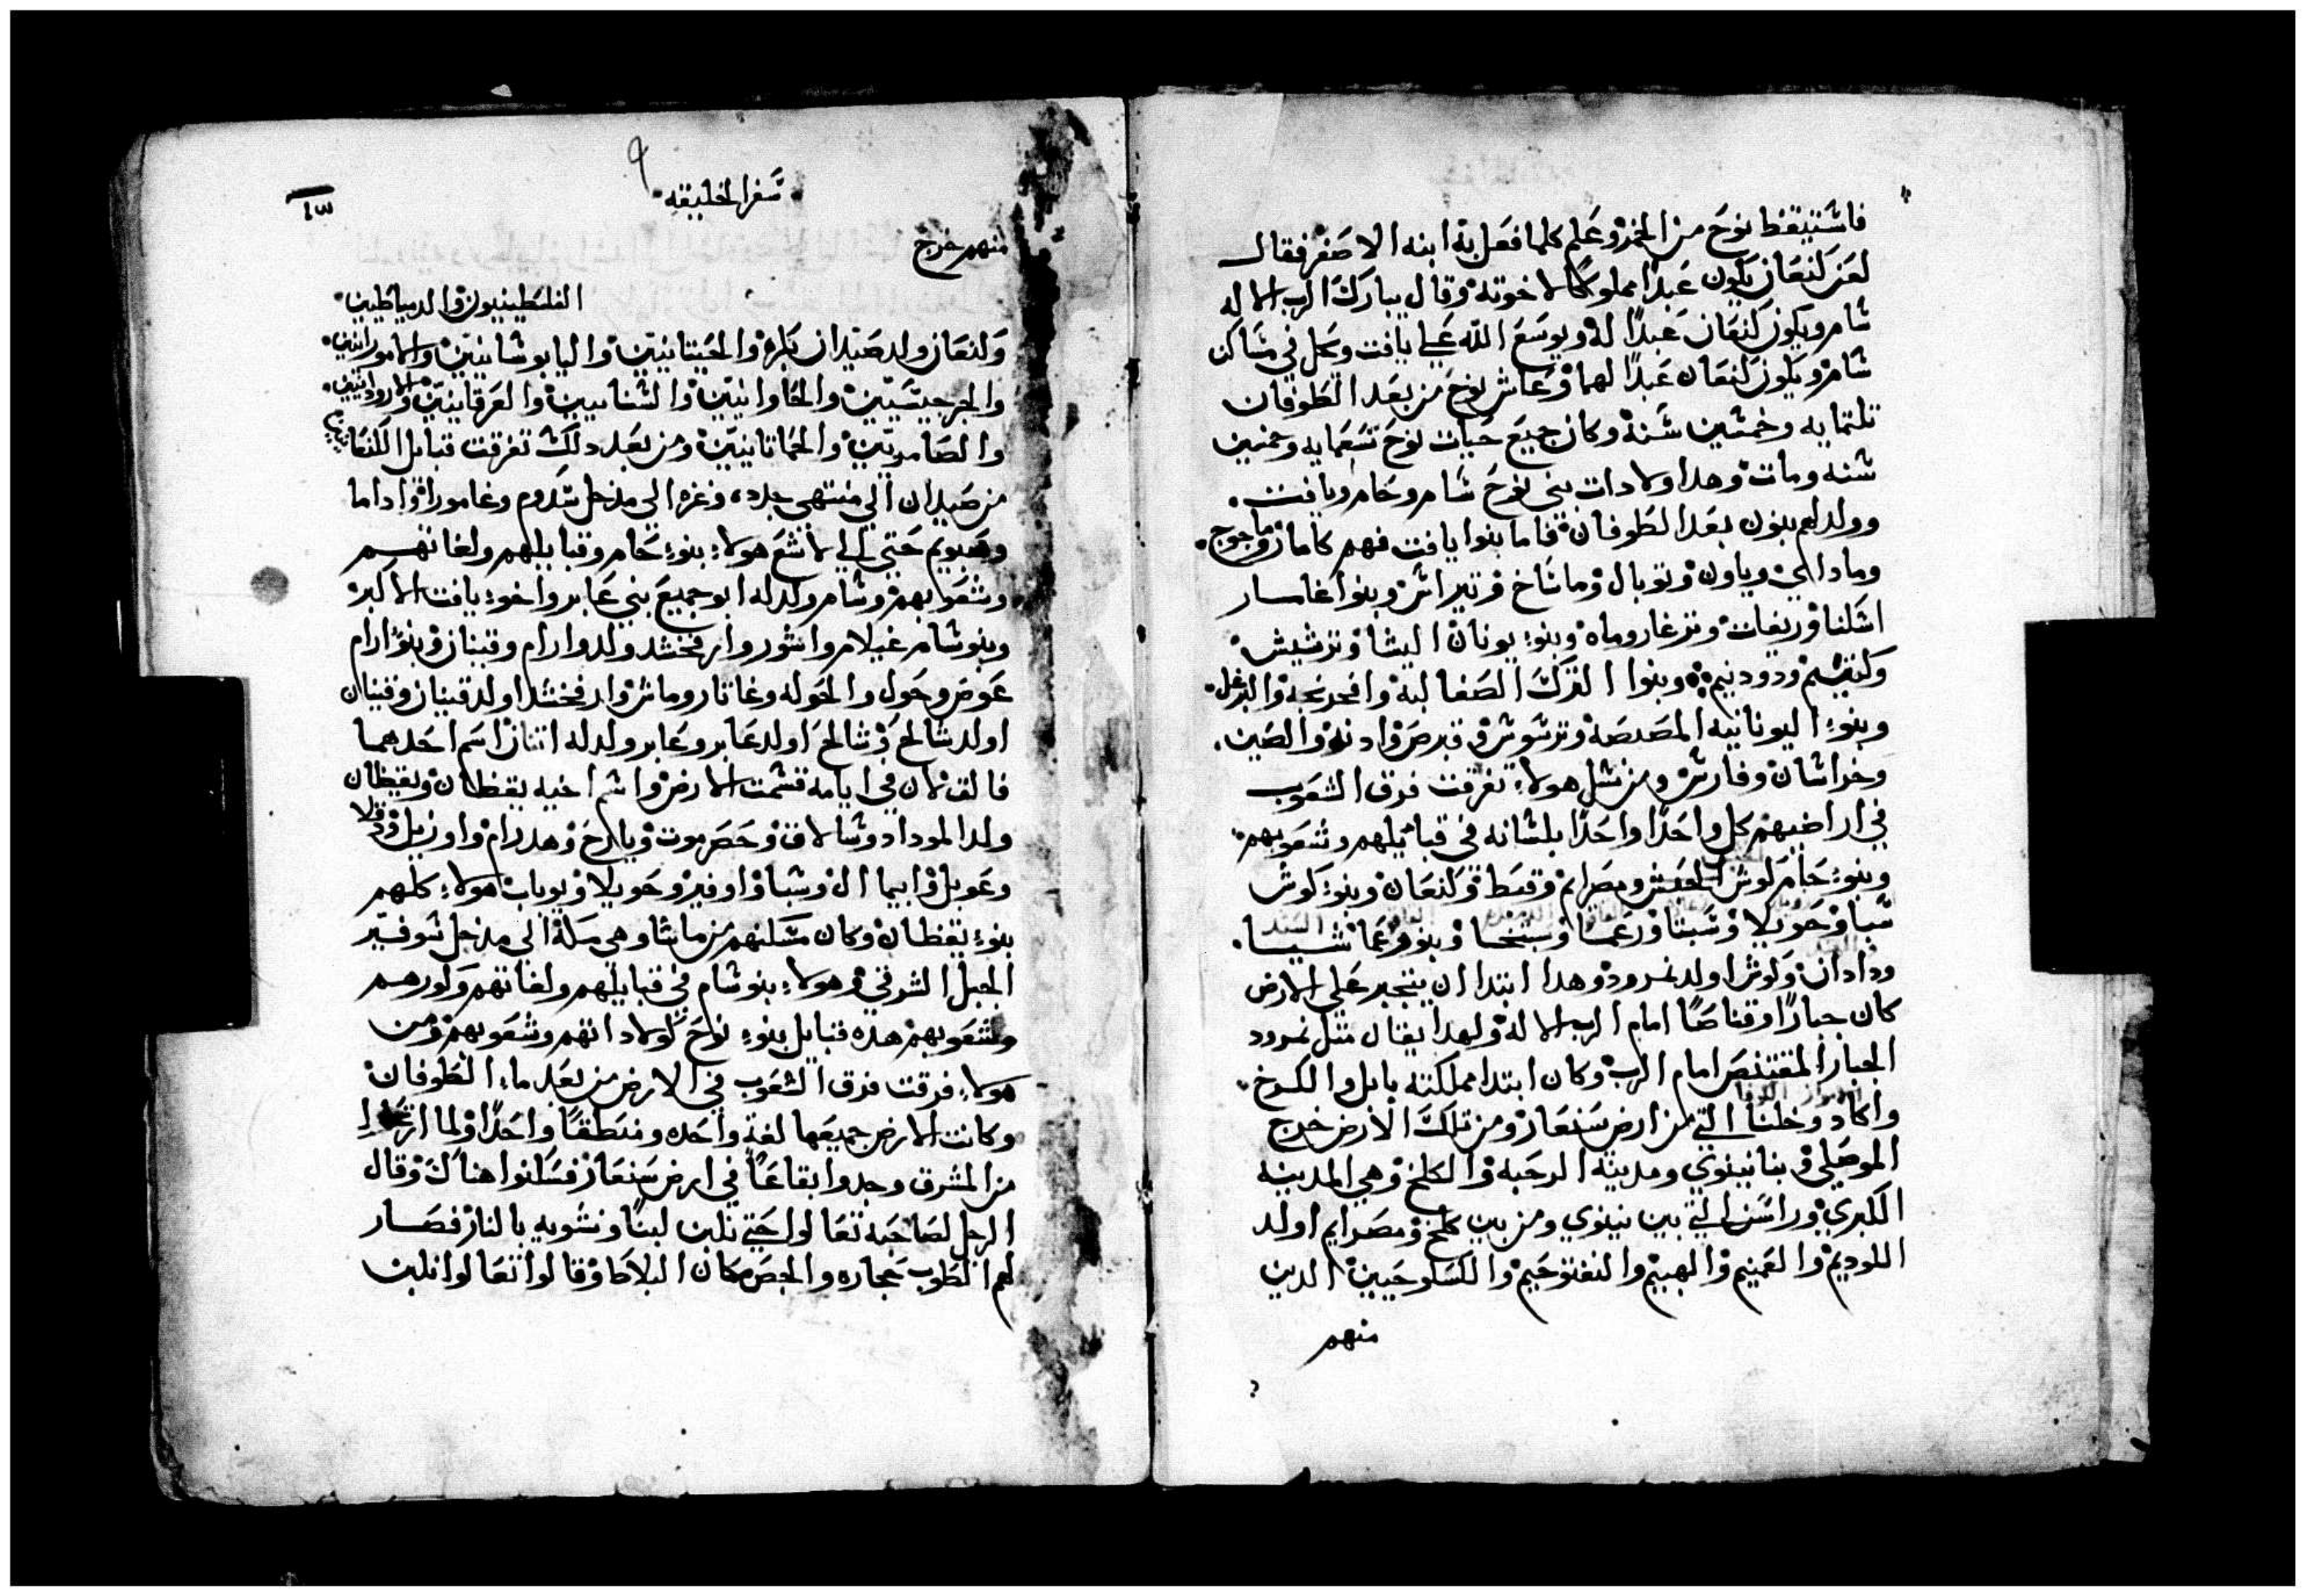 فاستيقظ نوح من الخمر وعلم كلما فعل به ابنه الاصغر فقال
لعن كنعان يكون عبدا مملوكا لاخوته وقال يبارك الرب الاله
شام ويكون كنعان عبدًا له ويوسع الله علي يافت ويحل في مساكن
شام ويكون كنعان عبدًا لهما وعاش نوح من بعد الطوفان
تلتمايه وخمسين سنة وكان جميع حيات نوح تسعمايه وخمسين
سنه ومات وهدا ولادات بني نوح سام وحام ويافت
وولد لهم بنون بعد الطوفان فاما بنوا يافت فهم كامار وماجوج
وماداي وياون وتوبال وماشاخ وتيراس وبنوا غامار
اشكناز وريفات وترغاروماه وبنو يونان اليشا وترشيش
وكتيم ودودنيم وبنوا الترك الصقالبة وافرنجه والبرغل
وبنو اليونانيه المصصه وترسوس وقبرص وادنه والصين
وخراسان وفارس ومن نسل هولاء تفرقت فرق الشعوب
في اراضيهم كل واحدًا واحدًا بلسانه في قبايلهم وشعوبهم
وبنو حام كوش ومصرايم وقفط وكنعان وبنو كوش
سبا وحويلا وسبتا ورعما وسبتخا وبنو رعما شبا
ودادان وكوش اولد نمرود وهدا ابتدا ان يتجبر علي الارض
كان جبارًا وقناصًا امام الرب الاله ولهدا يقال متل نمرود
الجبار المقتنص امام الرب وكان ابتدا مملكته بابل والكرخ
واكاد وخلنا التي من ارض سنعار ومن تلك الارض خرج
الموصلي وبنا نينوي ومدينة الرحبه والكلخ وهي المدينه
الكبري وراسن التي بين نينوي ومن بين كلخ ومصرايم اولد
اللوديم والعميم والهبيم والنفتوحيم والكسلوحيين الدين
منهم
سفر الخليقه
منهم خرج
الفلسطينيون والدمياطيين
وكنعان ولد صيدان بكره والحيتانيين واليابوسانيين والامورانيين
والجرجيسيين والحاوانيين والسنانيين والعرقانيين والاروادانيين
والصامريين والحماتانيين ومن بعد دلك تفرقت قبايل الكنعا
من صيدان الي منتهي جلده وغزه الي مدخل سدوم وغامورا واداما
وصبويم حتي الي لاشع هولاء بنو حام وقبايلهم ولغاتهم
وشعوبهم وشام ولد له ابو جميع بني عابر واخو يافت الاكبر
وبنو شام غيلام واشور وارفخشد ولود وارام وقينان وبنو ارام
عوص وحول والحوله وغاتار وماش وارفخشد اولد قينان وقينان
اولد شالح وشالح اولد عابر وعابر ولد له اتنان اسم احدهما
فالق لان في ايامه قسمت الارض واسم اخيه يقطان ويقطان
ولد المودادو وشالاف وحصرموت ويارح وهدرام واوزيل ودقلا
وعوبل وابيمال وشبا واوفير وحويلا ويوباب هولاء كلهم
بنو يقطان وكان مسكنهم من ماشا وهي مكة الي مدخل سوفير
الجبل الشرقي وهولاء بنو شام في قبايلهم ولغاتهم وكورهم
وشعوبهم هده قبايل بنو نوح كولاداتهم وشعوبهم ومن
هولاء فرقت فرق الشعوب في الارض من بعد ماء الطوفان
وكانت الارض جميعها لغة واحده ومنطقًا واحدًا ولما ارتحلوا
من المشرق وجدوا بقاعًا في ارض سنعار فسكنوا هناك وقال
الرجل لصاحبه تعالوا حتي نلبن لبنًا ونشويه بالنار فصار
لهم الطوب حجاره والجص مكان البلاط وقالوا تعالوا نلبن